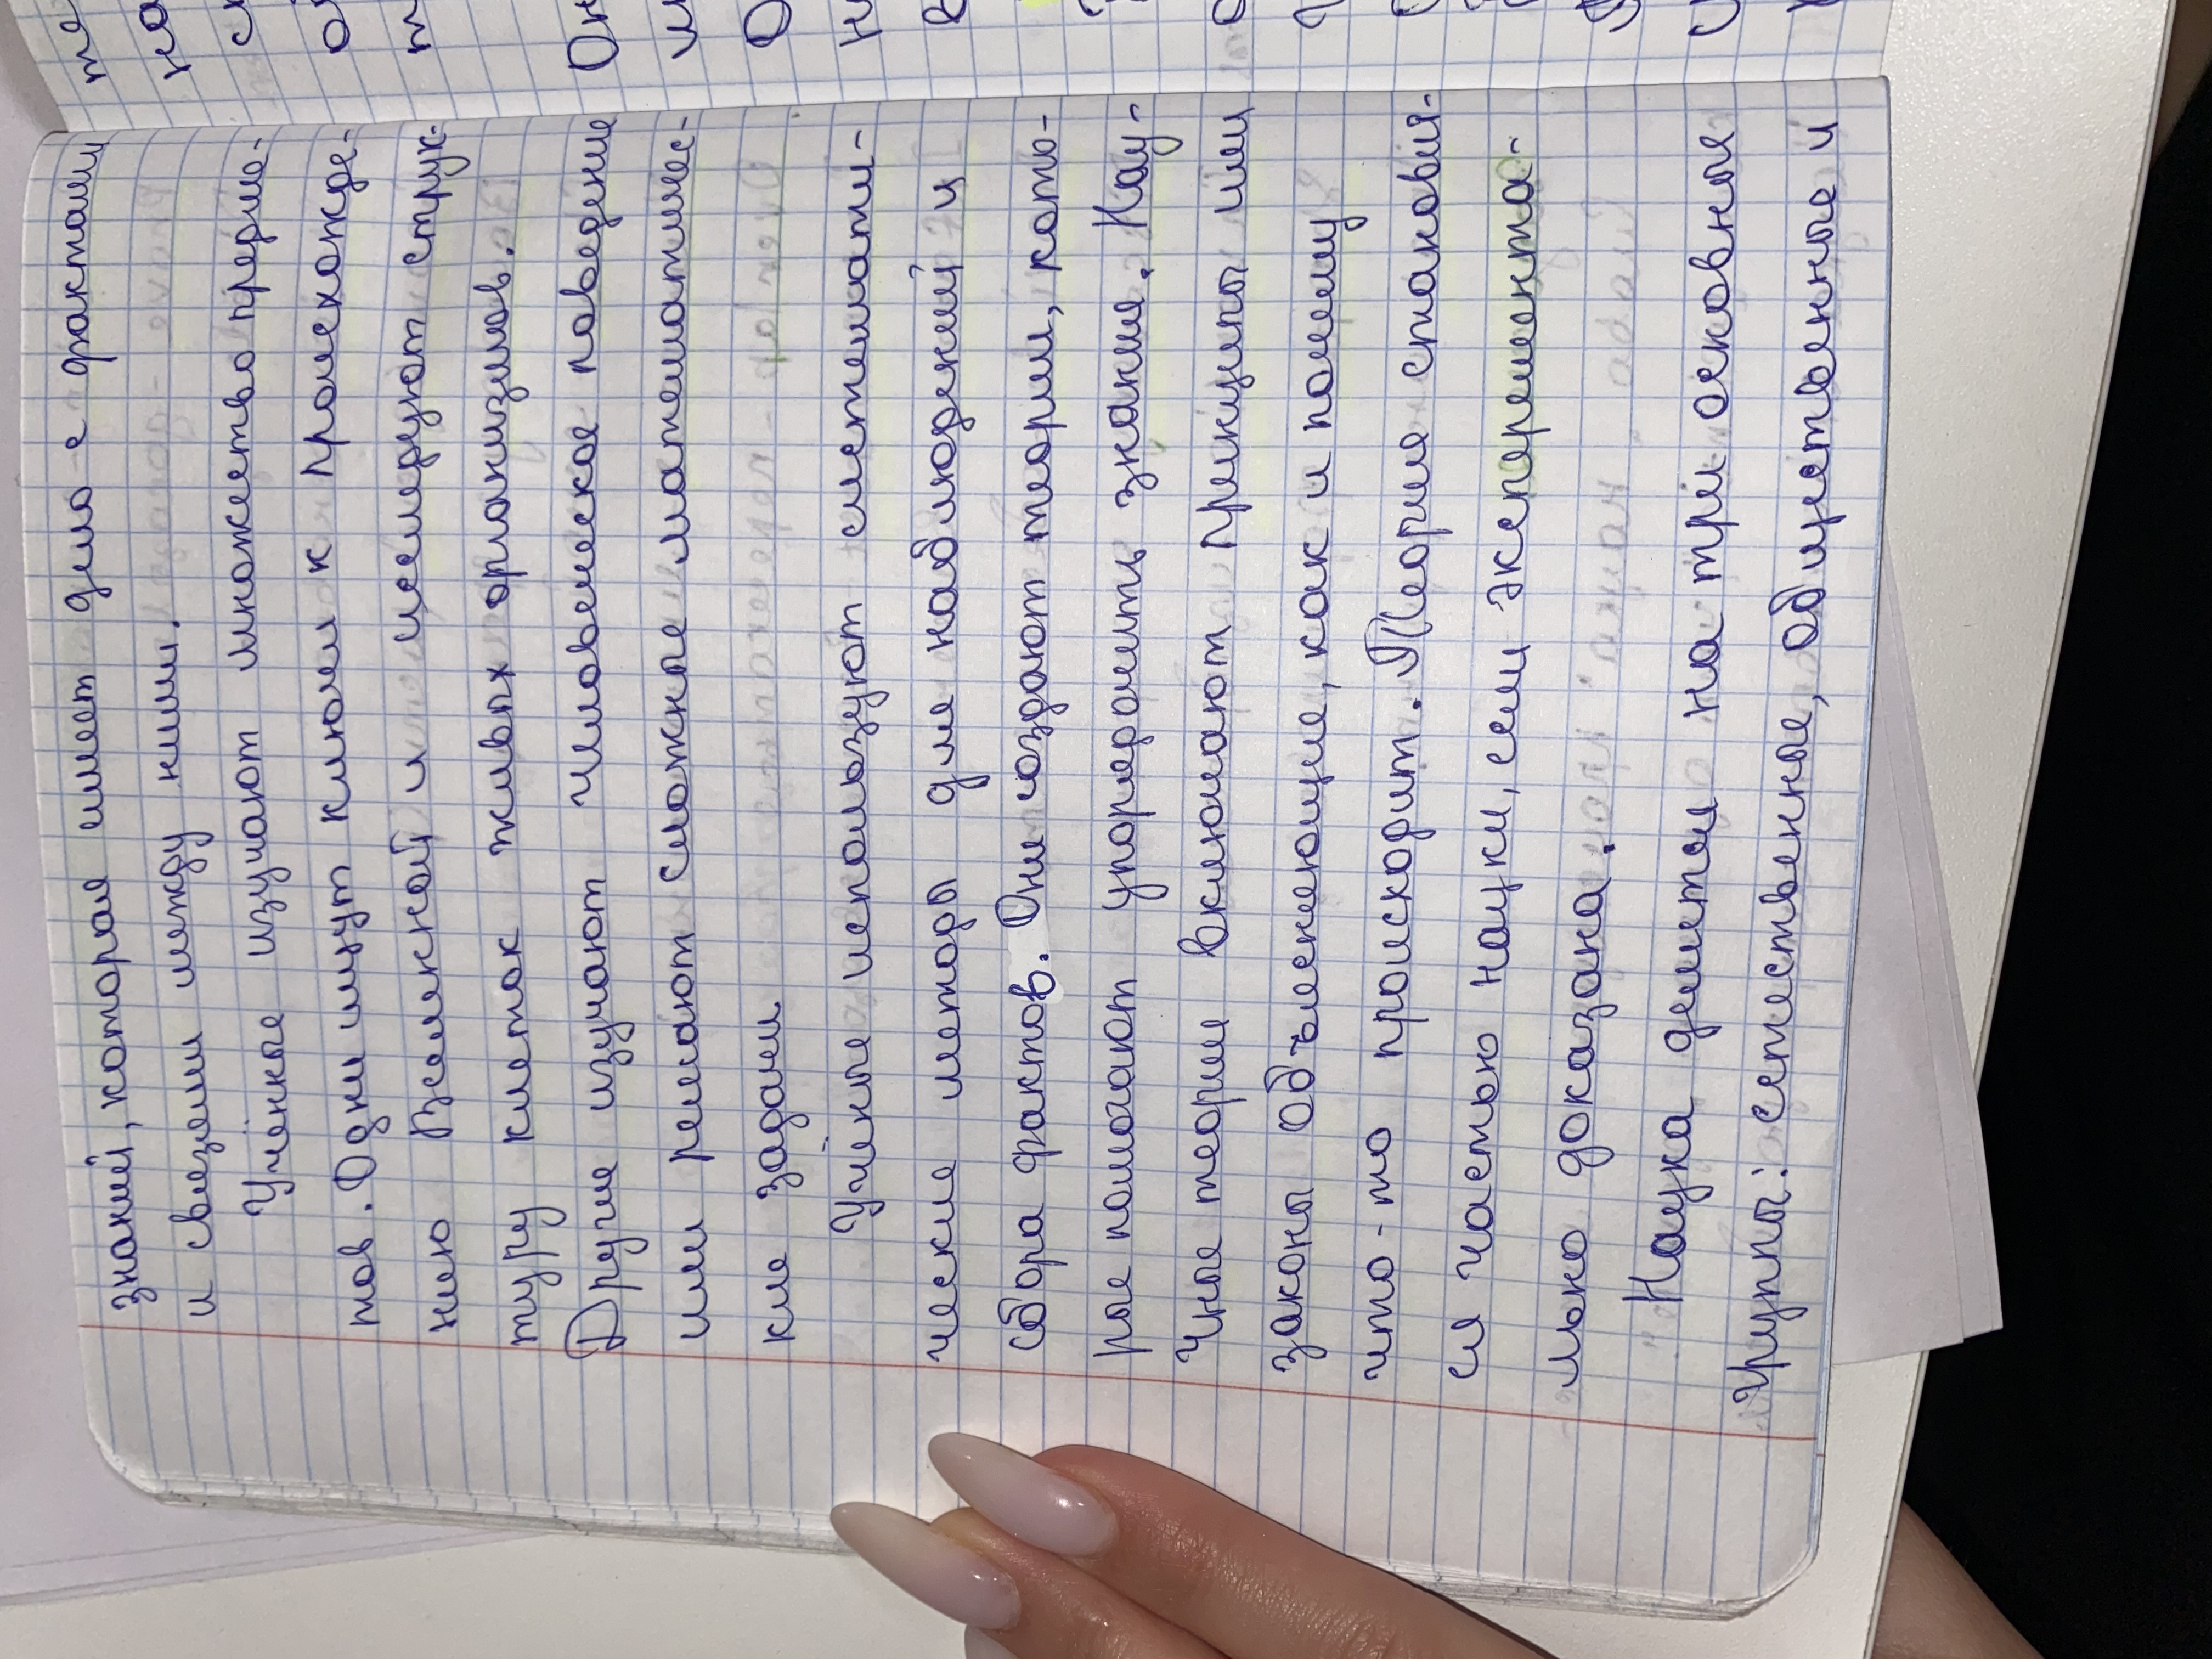 знаний, которая имеет дело с фактами
и связями между ними.
Учёные изучают множество предме-
тов. Одни ищут ключи к происхожде-
нию Вселенной и исследуют струк-
туру клеток живых организмов.
Другие изучают человеческое поведение
или решают сложные математичес-
кие задачи
Учёные используют системати-
ческие методы для наблюдений и
сбора фактов. Они создают теории, кото-
рые помогают упорядочить знания. Нау-
чные теории включают принципы или
законы объясняющие, как и почему
что-то происходит. Теория становит-
ся частью науки, если эксперемента-
льно доказана.
Наука делится на три основные
группы: естественные, общественные и